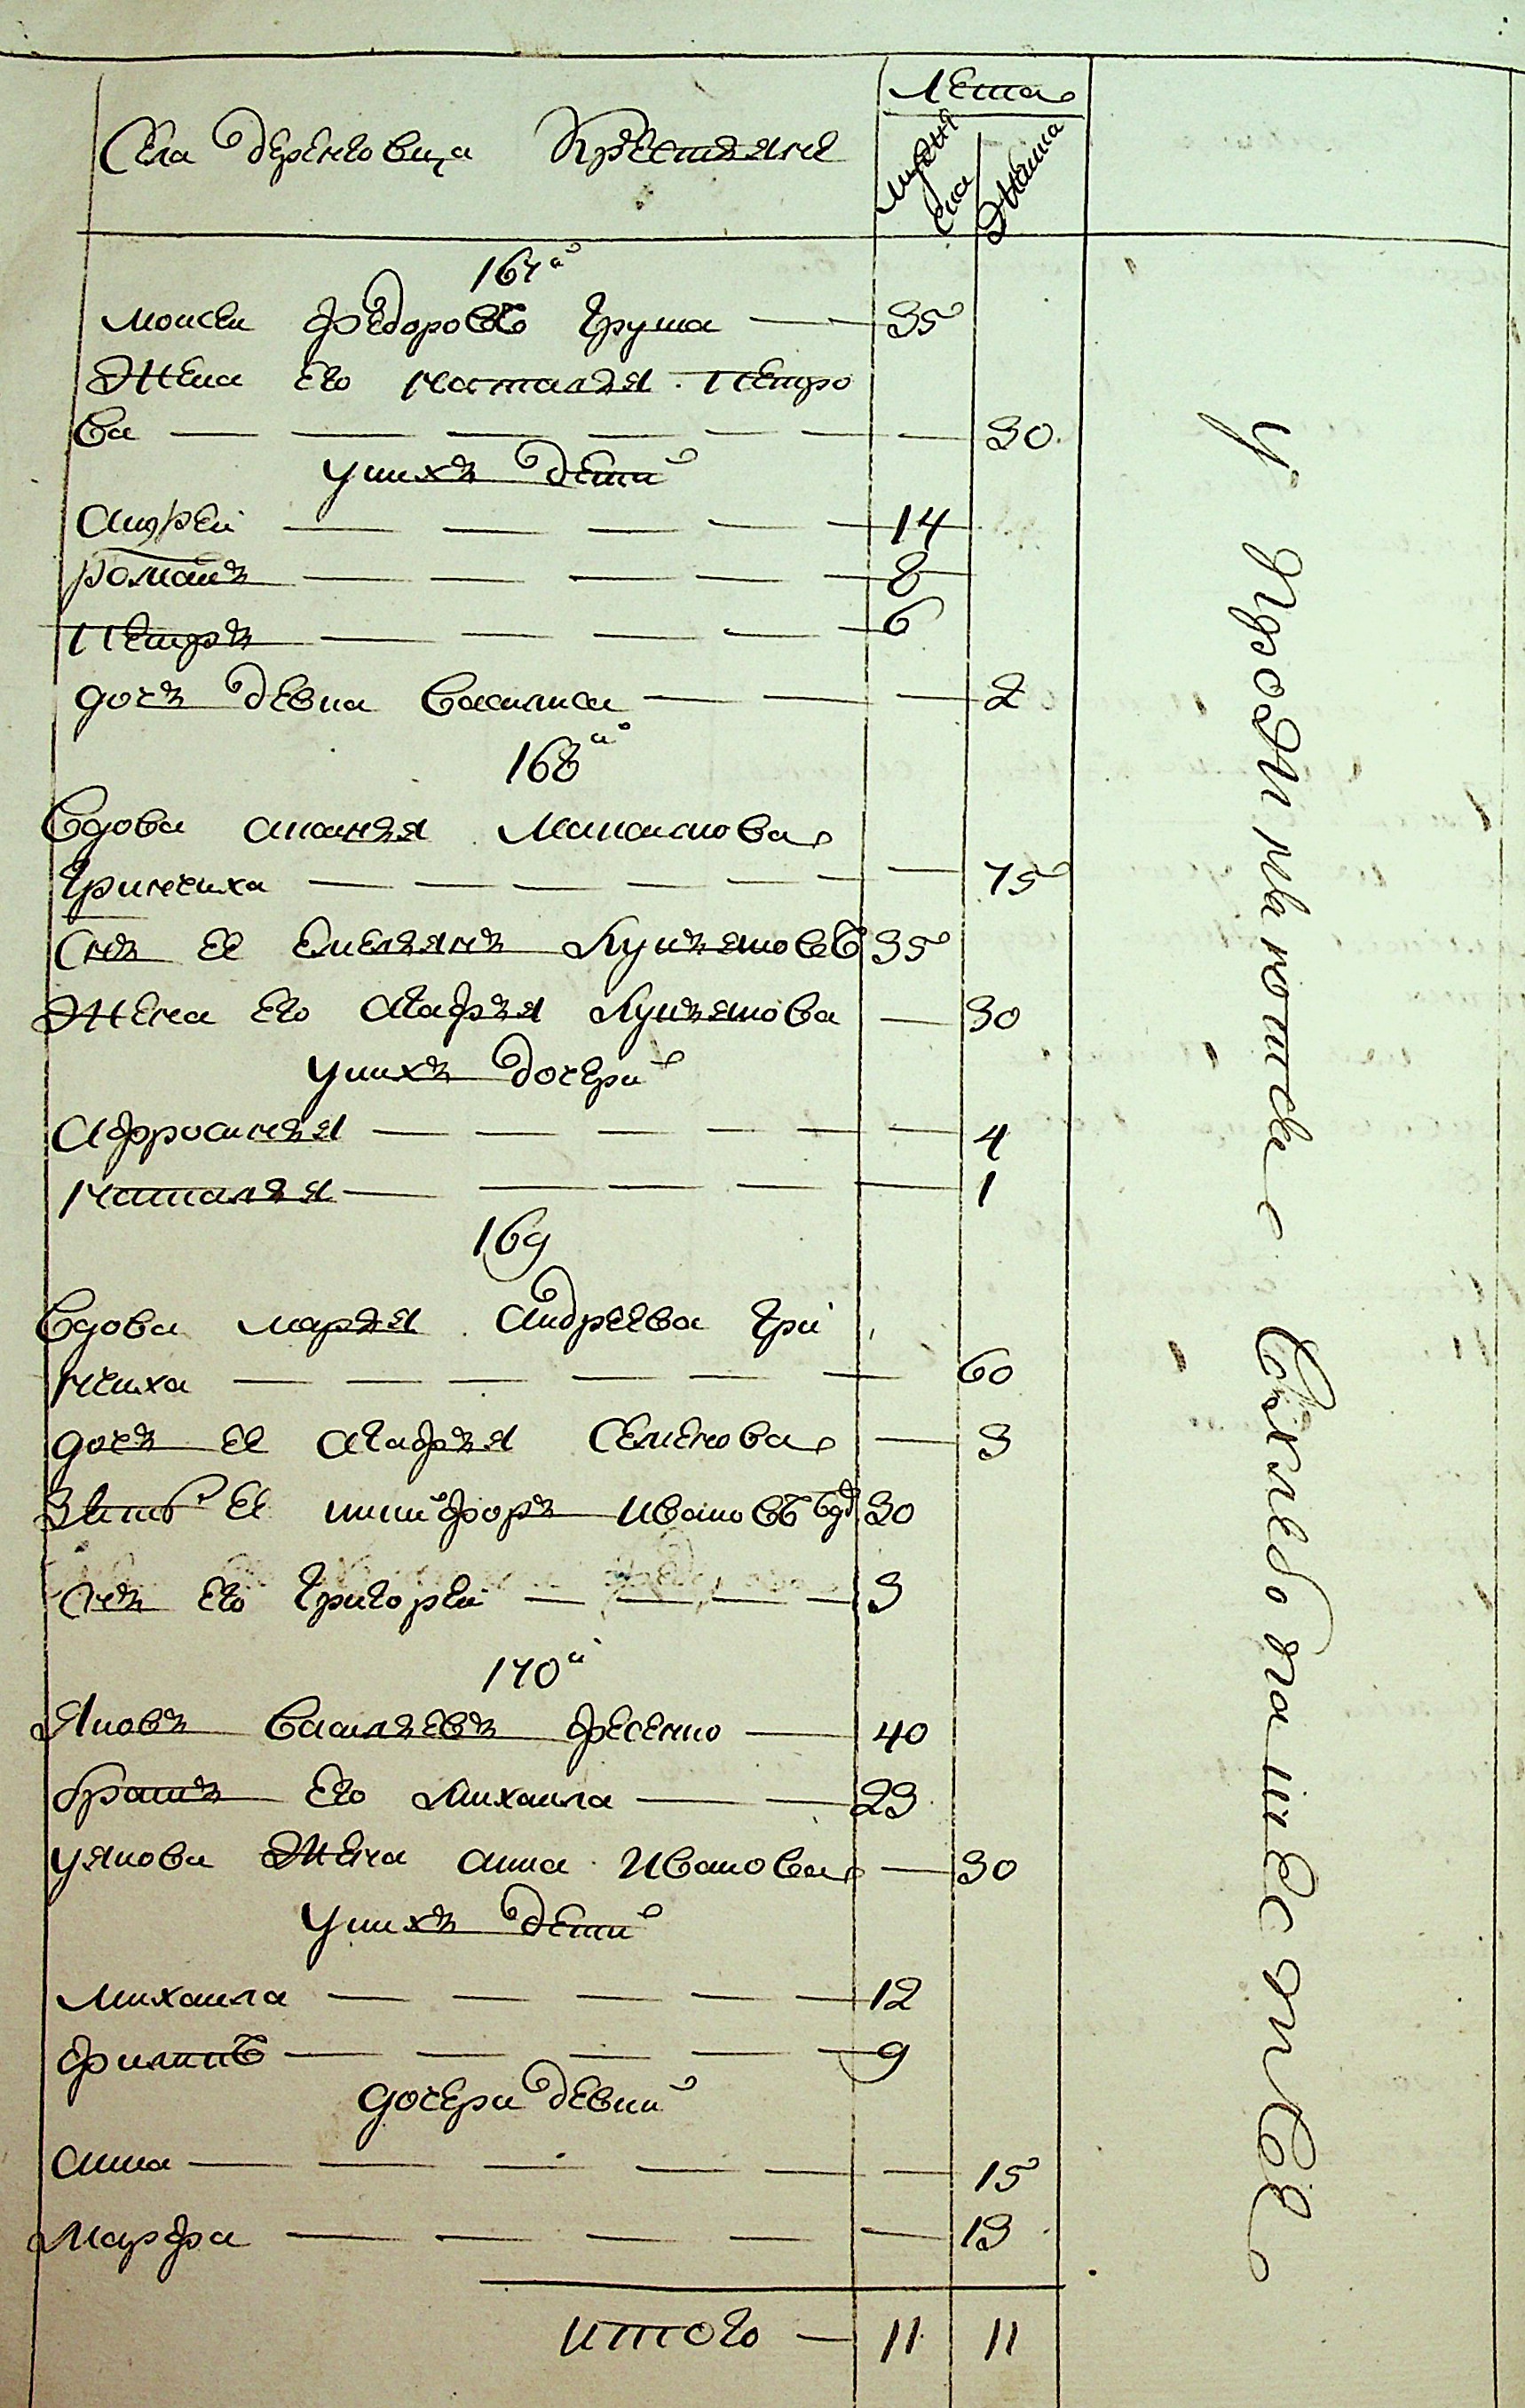 Лета
Села деренковца Крестьяне
мужеска
женска
167й
Моисей Федоровъ Груша — — 35
Жена его Наталья Петро
ва — — — — — — — 30
у нихъ детей
Андрей — — — — — 14
Романъ — — — — — 8
Петръ — — — — — 6
дочь девка Василиса — — — 2
168й
Вдова Анания
Гринчиха — — — — — — — 75
Снъ ее Емельянъ Лукьяновъ 35
Жена его Агафья Лукьянова — 30
у нихъ дочери
Афросинья — — — — — — 4
Наталья — — — — — — 1
169
Вдова Марья Андреева Гри
нчиха — — — — — — 60
дочь ее Агафья Семенова — 3
Зять ее Никифоръ Ивановъ вд 30
Снъ его Григорей — — — — 3
170й
Яковъ Васильевъ Фесенко — 40
братъ его Михаила — — 23
у Якова жена Анна Иванова — 30
у нихъ детей
Михаила — — — — — 12
Филипъ — — — — — 9
дочери девки
Анна — — — — — — 15
Марфа — — — — — 13
итого — 11 11